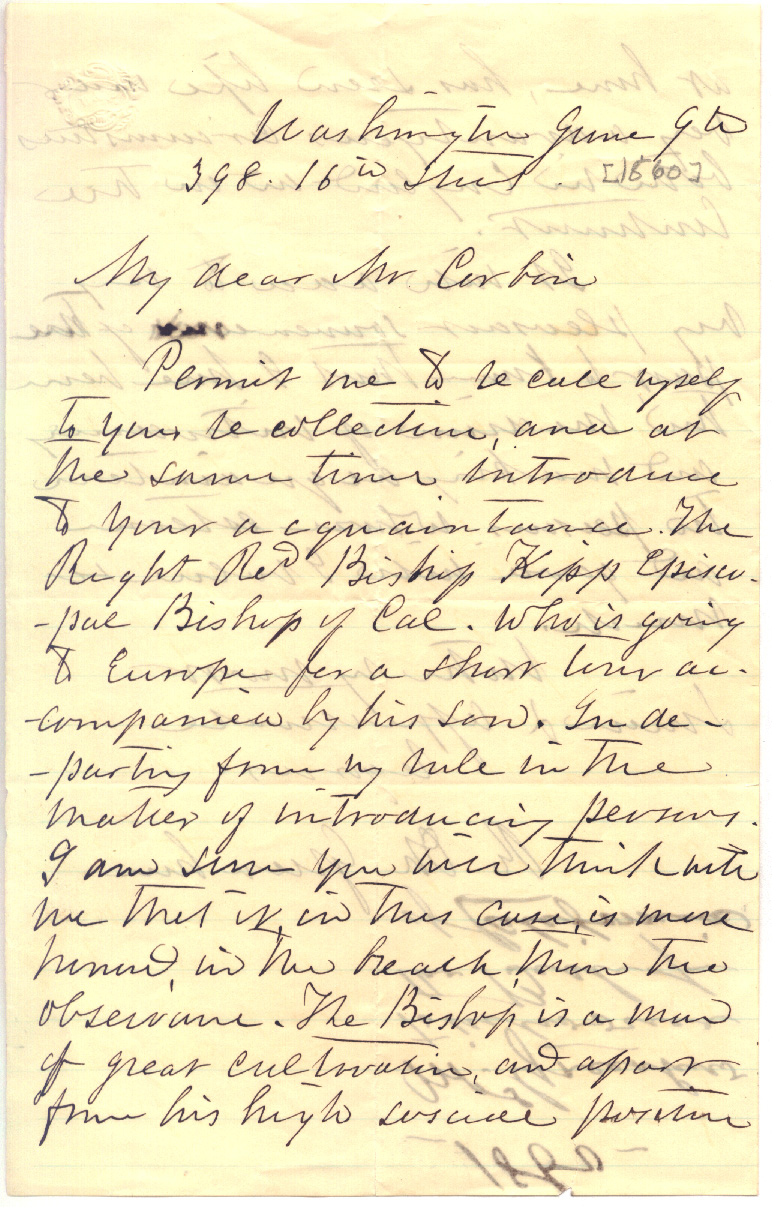 Washington June 9th
398. 16th Street. [1860]
My dear Mr Corbin
Permit me to recall myself
to your recollection, and at
the same time introduce
to your acquaintance. The
Right Revd Bishop Kipp Episco-
-pal Bishop of Cal. Who is going
to Europe for a short tour ac-
-companied by his son. In de-
-parting from my rule in the
matter of introducing persons.
I am sure you will think with
me that it, in this case, is more
honored, in the breach, than the
observance. The Bishop is a man
of great cultivation, and apart
from his high social position